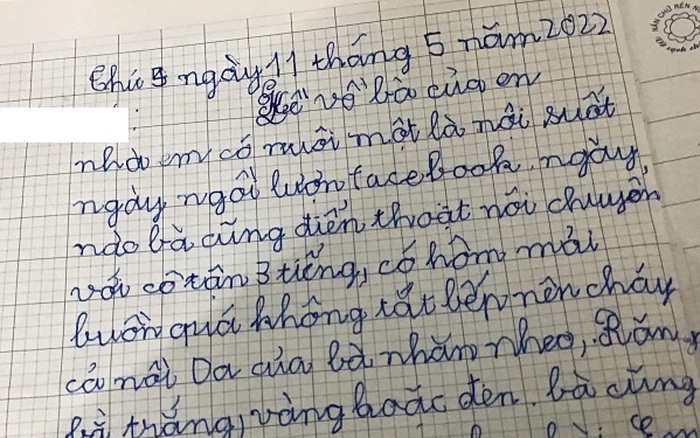 Chú 5 ngày 11 tháng 5 năm 2022
Kể về bà của en
nhà em có nuôi một là nội suốt
ngày ngồi lượn facebook. ngày
nào bà cũng điến thoạt nói chuyện
với cô tận 3 tiếng, có hôm mải
buồn quá không tắt bếp nên cháy
cả nồi Da của bà nhăn nheo, Răng
bà trắng, vàng hoặc đen. bà cũng